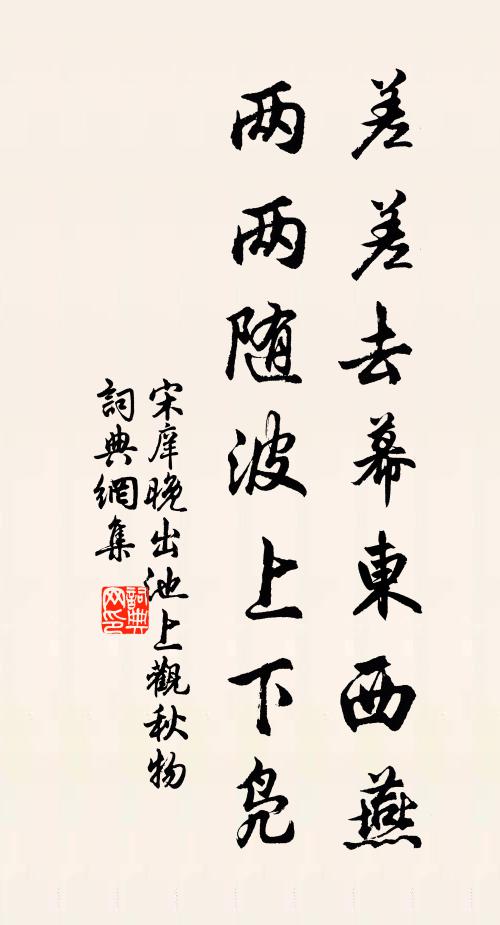 差差去幕東西燕
两两随波上下凫
宋庠晚出池上觀秋物
詞典網集
詞典网印